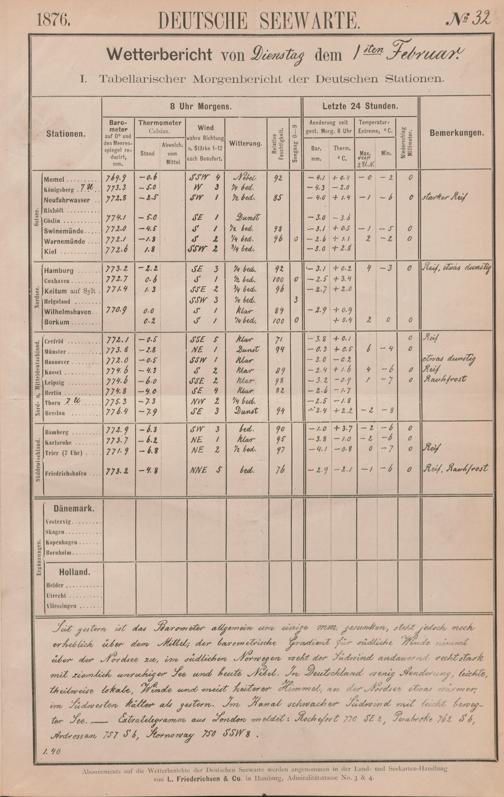 1876. DEUTSCHE SEEWARTE. No 32
Wetterbericht von Dienstag dem 1sten Februar.
I. Tabellarischer Morgenbericht der Deutschen Stationen.
8 Uhr Morgens. Letzte 24 Stunden.
Stationen. Barometer auf 0° und den Meeresspiegel reduzirt, mm. Thermometer Celsius. Stand Abweich. vom Mittel Wind wahre Richtung u. Stärke 1-12 nach Beaufort. Witterung. Relative Feuchtigkeit. Seegang 0-9 Aenderung seit gest. Morg. 8 Uhr Bar. mm. Therm. °C. Temperatur-Extreme, °C. Max. Min. Niederschlag Millimeter. Bemerkungen.
Ostsee.
Memel 769.9 -0.6 SSW 4 Nebel 92 0
Königsberg 7 U. 773.3 -5.0 W 3 ¼ bed. -4.3 -2.0
Neufahrwasser 772.8 -2.5 SW 1 ½ bed. 85 -4.0 +1.4 -1 -6 0 starker Reif
Rixhöft
Cöslin 774.1 -5.0 SE 1 Dunst -3.0 -3.6
Swinemünde 772.0 -4.5 S 1 ½ bed. 98 -3.1 +0.5 -1 -5 0
Warnemünde 772.1 -1.8 S 2 ¼ bed. 96 0 -2.6 +1.1 2 -2 0
Kiel 772.6 1.8 SSW 2 ¾ bed. -3.0 +2.8
Nordsee.
Hamburg 773.2 -2.2 SE 3 ¼ bed. 92 -3.1 +0.2 4 -3 0 Reif, etwas dunstig
Cuxhaven 772.7 0.6 S 1 ½ bed. 100 0 -2.5 +3.4
Keitum auf Sylt 771.4 1.3 SSE 2 ¾ bed. 96 -2.7 +2.0
Helgoland SSW 3 ¼ bed. 3
Wilhelmshaven 770.9 0.0 S 1 klar 89 -2.9 +0.9
Borkum 0.2 S 1 ¼ bed. 100 0 +0.4 2 0 0
Nord- u. Mitteldeutschland.
Crefeld 772.1 -0.5 SSE 5 klar 71 -3.8 +0.1 0 Reif
Münster 773.5 -2.8 NE 1 Dunst 94 -0.3 +0.5 6 -4 0
Hannover 772.0 -0.5 SSW 1 klar -3.0 -0.2 etwas dunstig
Kassel 774.6 -4.3 S 2 klar 89 -2.4 +1.6 4 -6 0 Reif
Leipzig 774.6 -6.0 SSE 2 klar 98 -3.2 -0.9 1 -7 0 Rauhfrost
Berlin 774.8 -4.0 SE 4 klar 82 -2.6 -1.7
Thorn 7 U. 775.3 -7.3 NW 2 ¼ bed. -2.5 -1.8
Breslau 776.4 -7.9 SE 3 Dunst 94 -2.4 +2.2 -2 -8
Süddeutschland.
Bamberg 772.9 -6.3 SW 3 bed. 90 -1.0 +3.7 -2 -6 0
Karlsruhe 773.7 -6.2 NE 1 klar 95 -3.8 -1.0 -2 -6 0
Trier (7 Uhr) 771.9 -6.8 NE 2 ½ bed. 97 -4.1 -0.8 0 -7 0 Reif
Friedrichshafen 773.2 -4.8 NNE 5 bed. 76 -2.9 -2.1 -1 -6 0 Reif, Rauhfrost
Ergänzungen.
Dänemark.
Vestervig
Skagen
Kopenhagen
Bornholm
Holland.
Helder
Utrecht
Vlissingen
Seit gestern ist das Barometer allgemein um einige mm gesunken, steht jedoch noch
erheblich über dem Mittel; der barometrische Gradient für südliche Winde nimmt
über der Nordsee zu, im südlichen Norwegen weht der Südwind andauernd recht stark
mit ziemlich unruhiger See und heute Nebel. In Deutschland wenig Aenderung, leichte,
theilweise lokale, Winde und meist heiterer Himmel, an der Nordsee etwas wärmer,
im Südwesten kälter als gestern. Im Kanal schwacher Südwind mit leicht beweg-
ter See. — Extratelegramm aus London meldet: Rochefort 770 SE 2, Pembroke 762 S 6,
Ardrossan 757 S 6, Stornoway 750 SSW 8.
1.40
Abonnements auf die Wetterberichte der Deutschen Seewarte werden angenommen in der Land- und Seekarten-Handlung
von L. Friederichsen & Co. in Hamburg, Admiralitätstrasse No. 3 & 4.